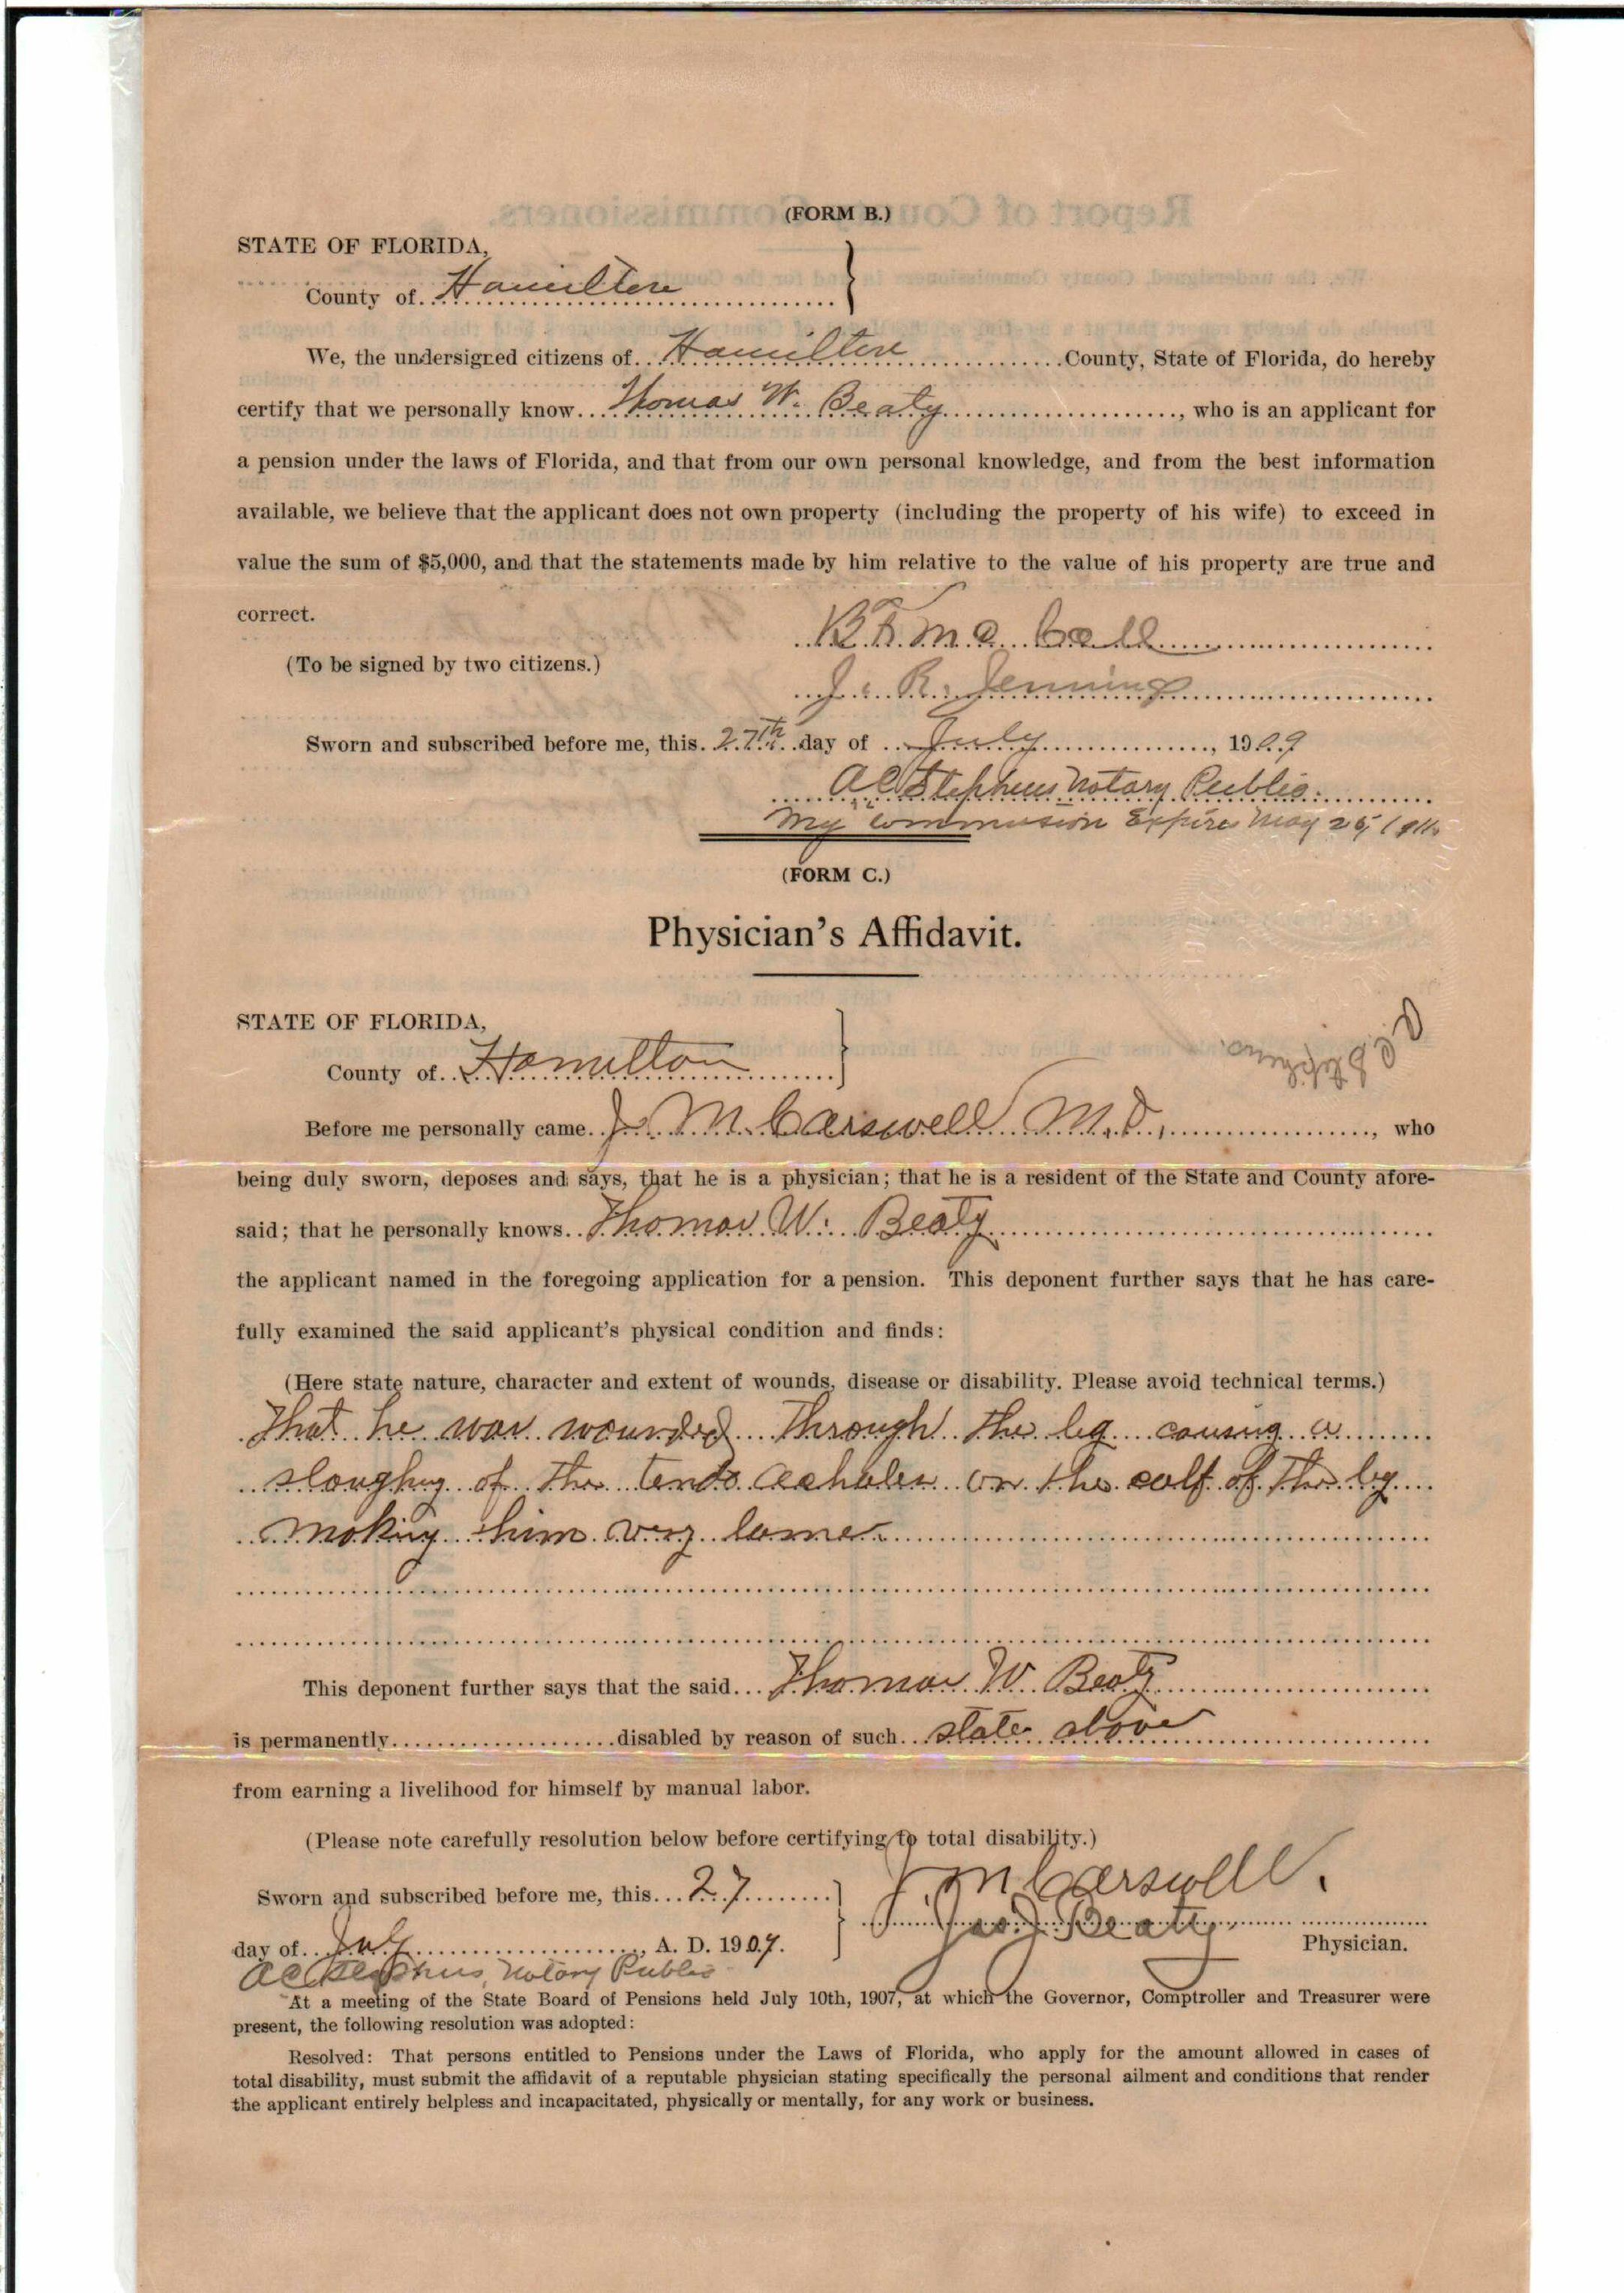 (FORM B.)
STATE OF FLORIDA,
County of Hamilton
We, the undersigned citizens of Hamilton County, State of Florida, do hereby
certify that we personally know Thomas W. Beaty, who is an applicant for
a pension under the laws of Florida, and that from our own personal knowledge, and from the best information
available, we believe that the applicant does not own property (including the property of his wife) to exceed in
value the sum of $5,000, and that the statements made by him relative to the value of his property are true and
correct.
B F. Mc Call
(To be signed by two citizens.)
J. R. Jennings
Sworn and subscribed before me, this 27th day of July, 1909
A C Stephens Notary Public
My commission Expires May 25, 1911
(FORM C.)
Physician's Affidavit.
STATE OF FLORIDA,
County of Hamilton
A C Stephens
Before me personally came J. M. Carswell M.D., who
being duly sworn, deposes and says, that he is a physician; that he is a resident of the State and County afore-
said; that he personally knows Thomas W. Beaty
the applicant named in the foregoing application for a pension. This deponent further says that he has care-
fully examined the said applicant's physical condition and finds:
(Here state nature, character and extent of wounds, disease or disability. Please avoid technical terms.)
That he was wounded through the leg causing a
sloughing of the tendo Achales on the calf of the leg
making him very lame
This deponent further says that the said Thomas W Beaty
is permanently disabled by reason of such state above
from earning a livelihood for himself by manual labor.
(Please note carefully resolution below before certifying to total disability.)
Sworn and subscribed before me, this 27
J. M Carswell.
Jas. J. Beaty
day of July, A. D. 1909.
Physician.
A C Stephens, Notary Public
At a meeting of the State Board of Pensions held July 10th, 1907, at which the Governor, Comptroller and Treasurer were
present, the following resolution was adopted:
Resolved: That persons entitled to Pensions under the Laws of Florida, who apply for the amount allowed in cases of
total disability, must submit the affidavit of a reputable physician stating specifically the personal ailment and conditions that render
the applicant entirely helpless and incapacitated, physically or mentally, for any work or business.